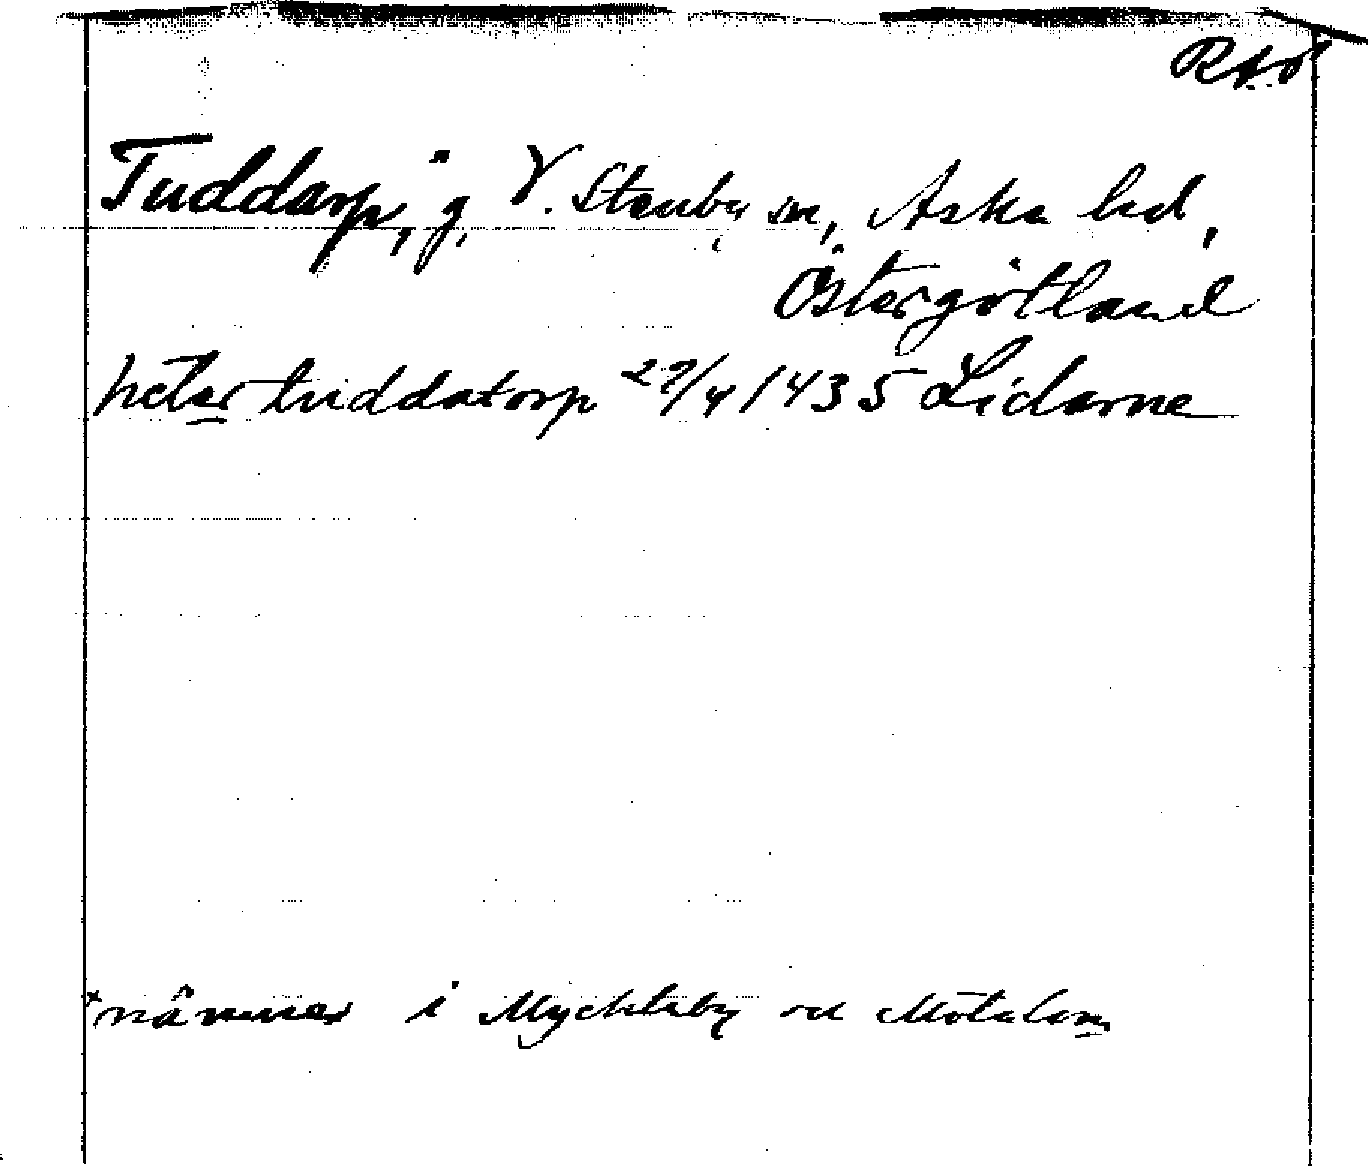 RAÖ
Tuddarp, g, V. Stenby sn, Aska hd,
Östergötland
peter tuddatorp 29/4 1435 Lidarne
nämnes i Myckleby oc Motalom